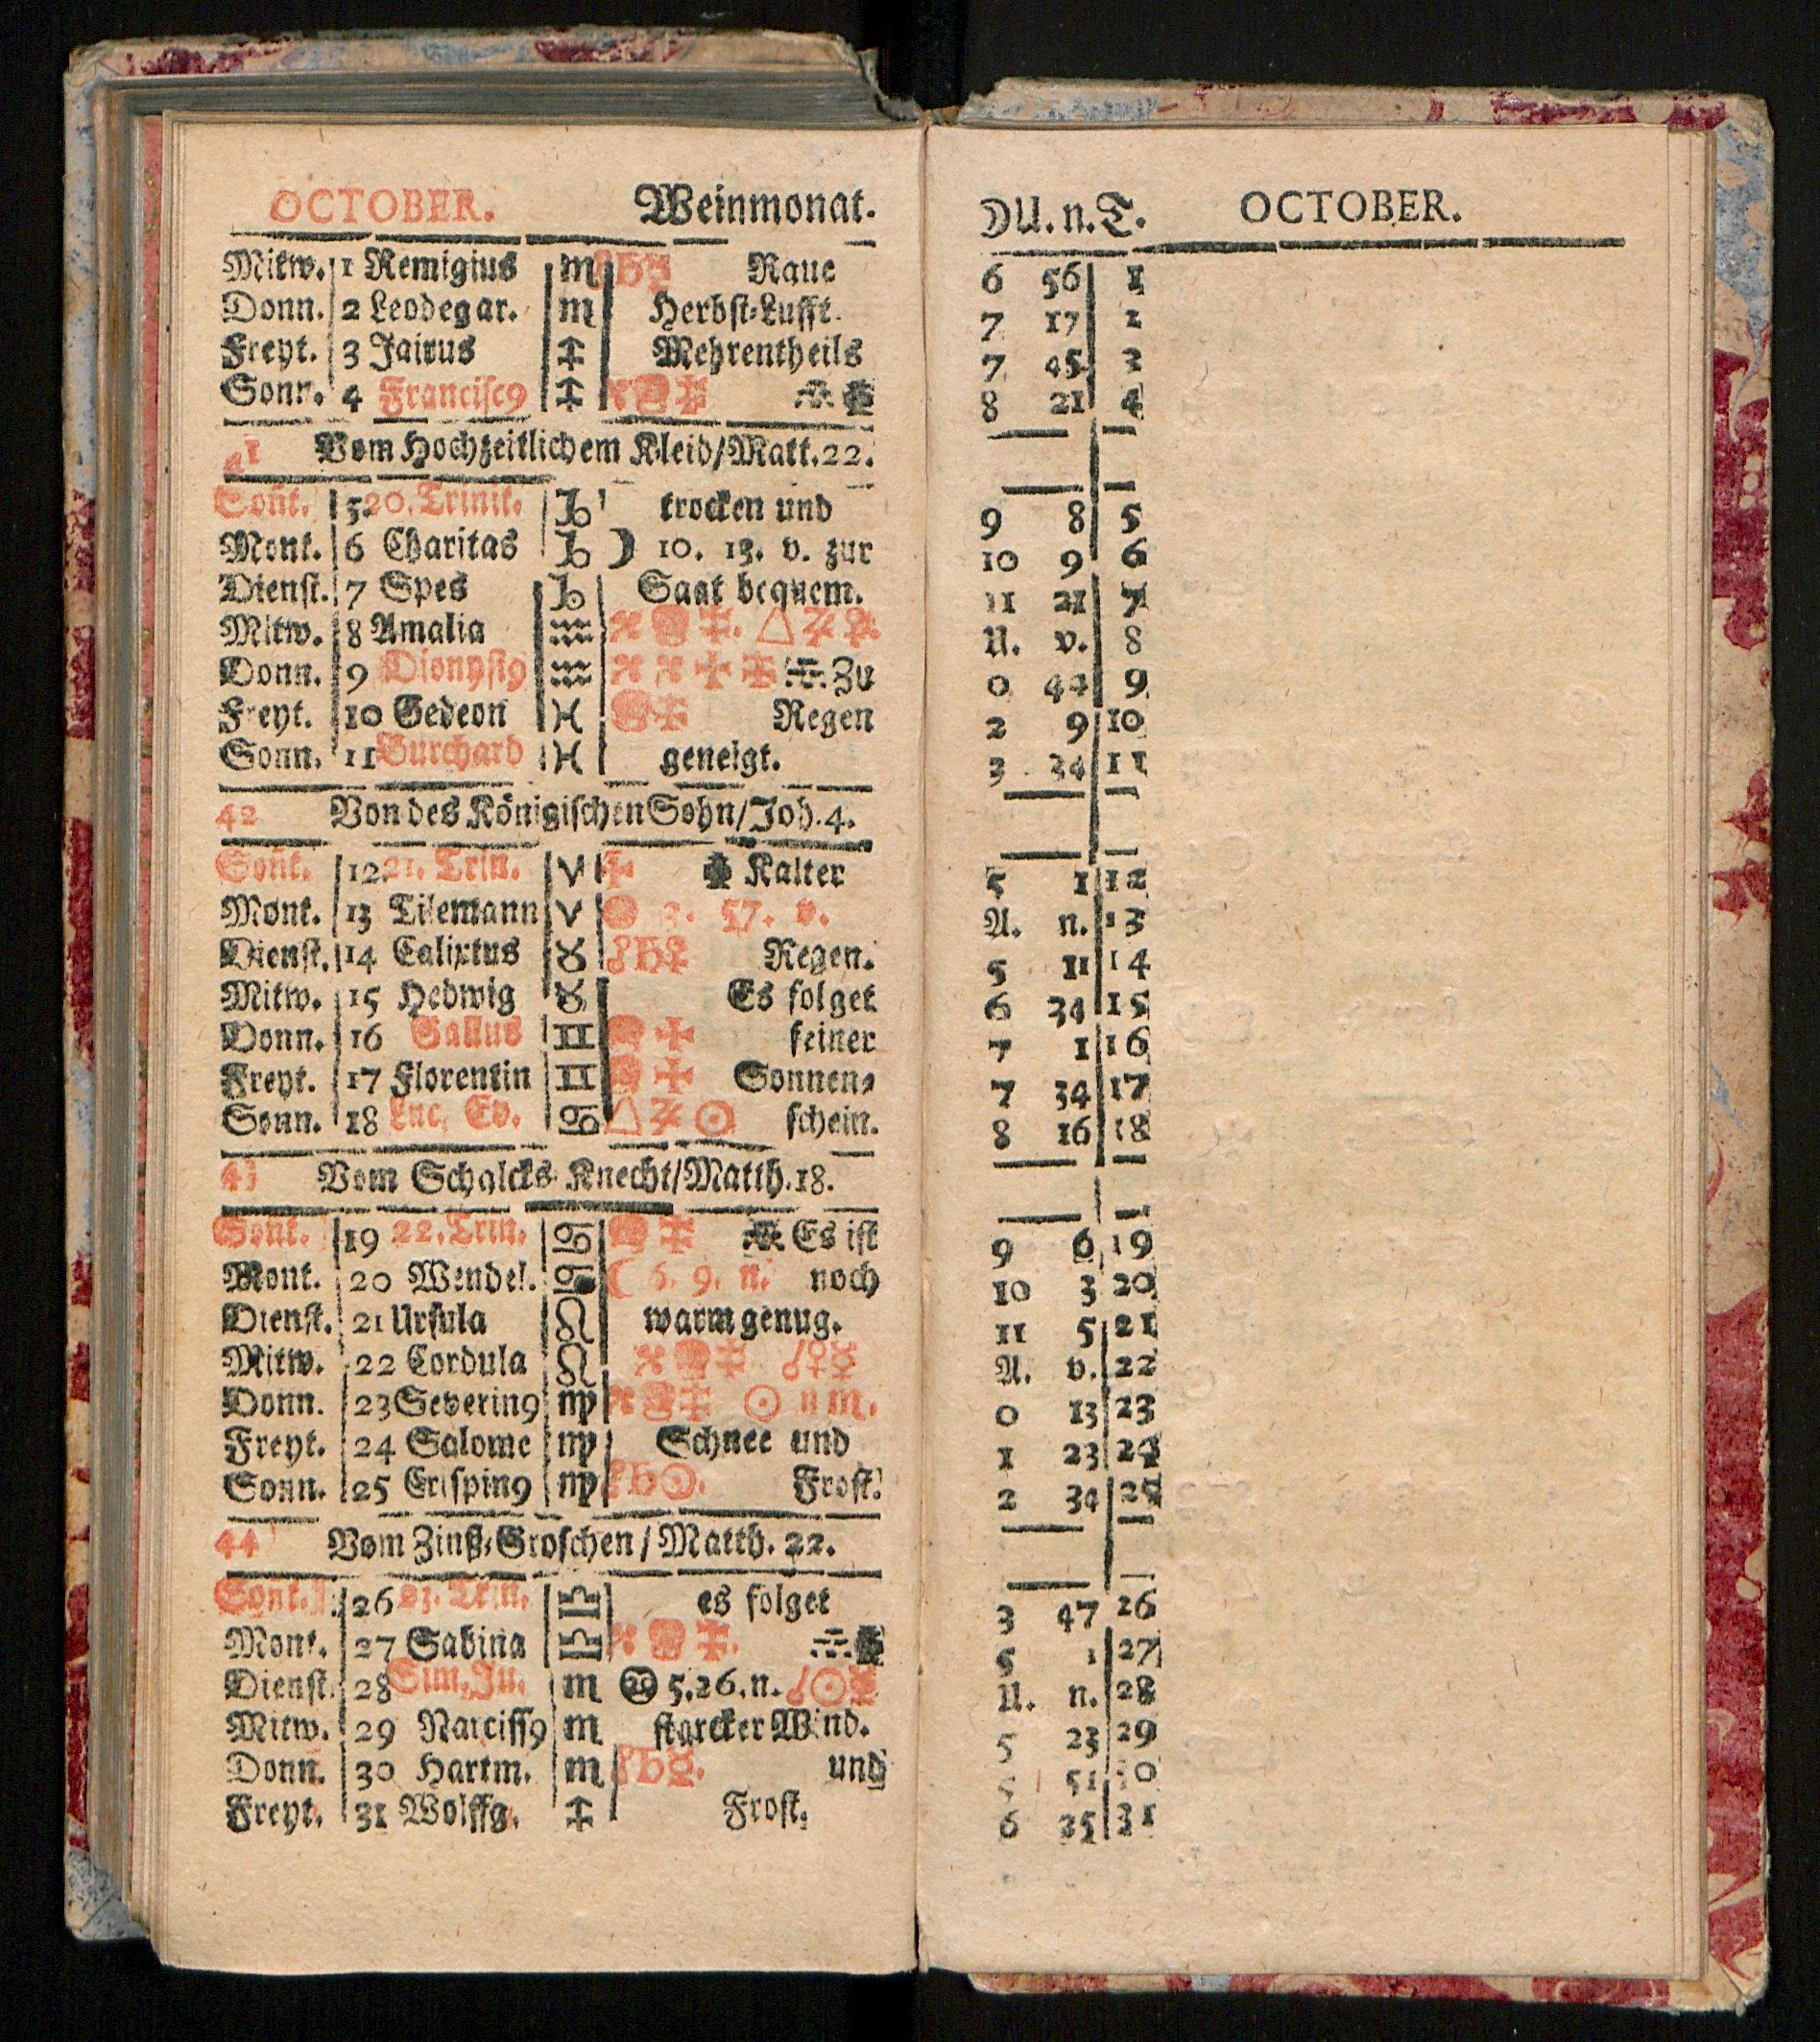 OCTOBER. Weinmonat.
Mitw. 1 Remigius ♏ Raue
Donn. 2 Leodegar. ♏ Herbst-Lufft.
Freyt. 3 Jairus ♐ Mehrentheils
Sonn. 4 Francisc9 ♐
41 Vom Hochzeitlichem Kleid/Matt.22.
Soñt. 5 20. Trinit. ♑ trocken und
Mont. 6 Charitas ♑ ☽ 10. 13. v. zur
Dienst. 7 Spes ♑ Saat bequem.
Mitw. 8 Amalia ♒ △ ♃ ♀.
Donn. 9 Dionysi9 ♒ Zu
Freyt. 10 Gedeon ♓ Regen
Sonn. 11 Burchard ♓ geneigt.
42 Von des Königischen Sohn/Joh.4.
Soñt. 12 21. Trin. ♈ Kalter
Mont. 13 Tilemann ♈ 3. 57. v.
Dienst. 14 Calixtus ♉ Regen.
Mitw. 15 Hedwig ♉ Es folget
Donn. 16 Gallus ♊ feiner
Freyt. 17 Florentin ♊ Sonnen-
Sonn. 18 Luc. Ev. ♋ △ ♃ ☉ schein.
43 Vom Schalcks-Knecht/Matth.18.
Soñt. 19 22. Trin. ♋ Es ist
Mont. 20 Wendel. ♋ ☾ 6. 9. n. noch
Dienst. 21 Ursula ♌ warm genug.
Mitw. 22 Cordula ♌ ☌♀☿
Donn. 23 Severin9 ♍ ☉ in ♏.
Freyt. 24 Salome ♍ Schnee und
Sonn. 25 Crispin9 ♍ Frost.
44 Vom Zinß-Groschen/Matth. 22.
Soñt. 26 23. Trin. ♎ es folget
Mont. 27 Sabina ♎
Dienst. 28 Sim. Ju. ♏ 5.26.n. ☌☉☿
Mitw. 29 Narciss9 ♏ starcker Wind.
Donn. 30 Hartm. ♏ und
Freyt. 31 Wolffg. ♐ Frost.
☽U. n. T. OCTOBER.
6 56 1
7 17 2
7 45 3
8 21 4
9 8 5
10 9 6
11 21 7
U. v. 8
0 44 9
2 9 10
3 34 11
5 1 12
A. n. 13
5 11 14
6 34 15
7 1 16
7 34 17
8 16 18
9 6 19
10 3 20
11 5 21
A. v. 22
0 13 23
1 23 24
2 34 25
3 47 26
5 1 27
U. n. 28
5 23 29
5 51 30
6 35 31